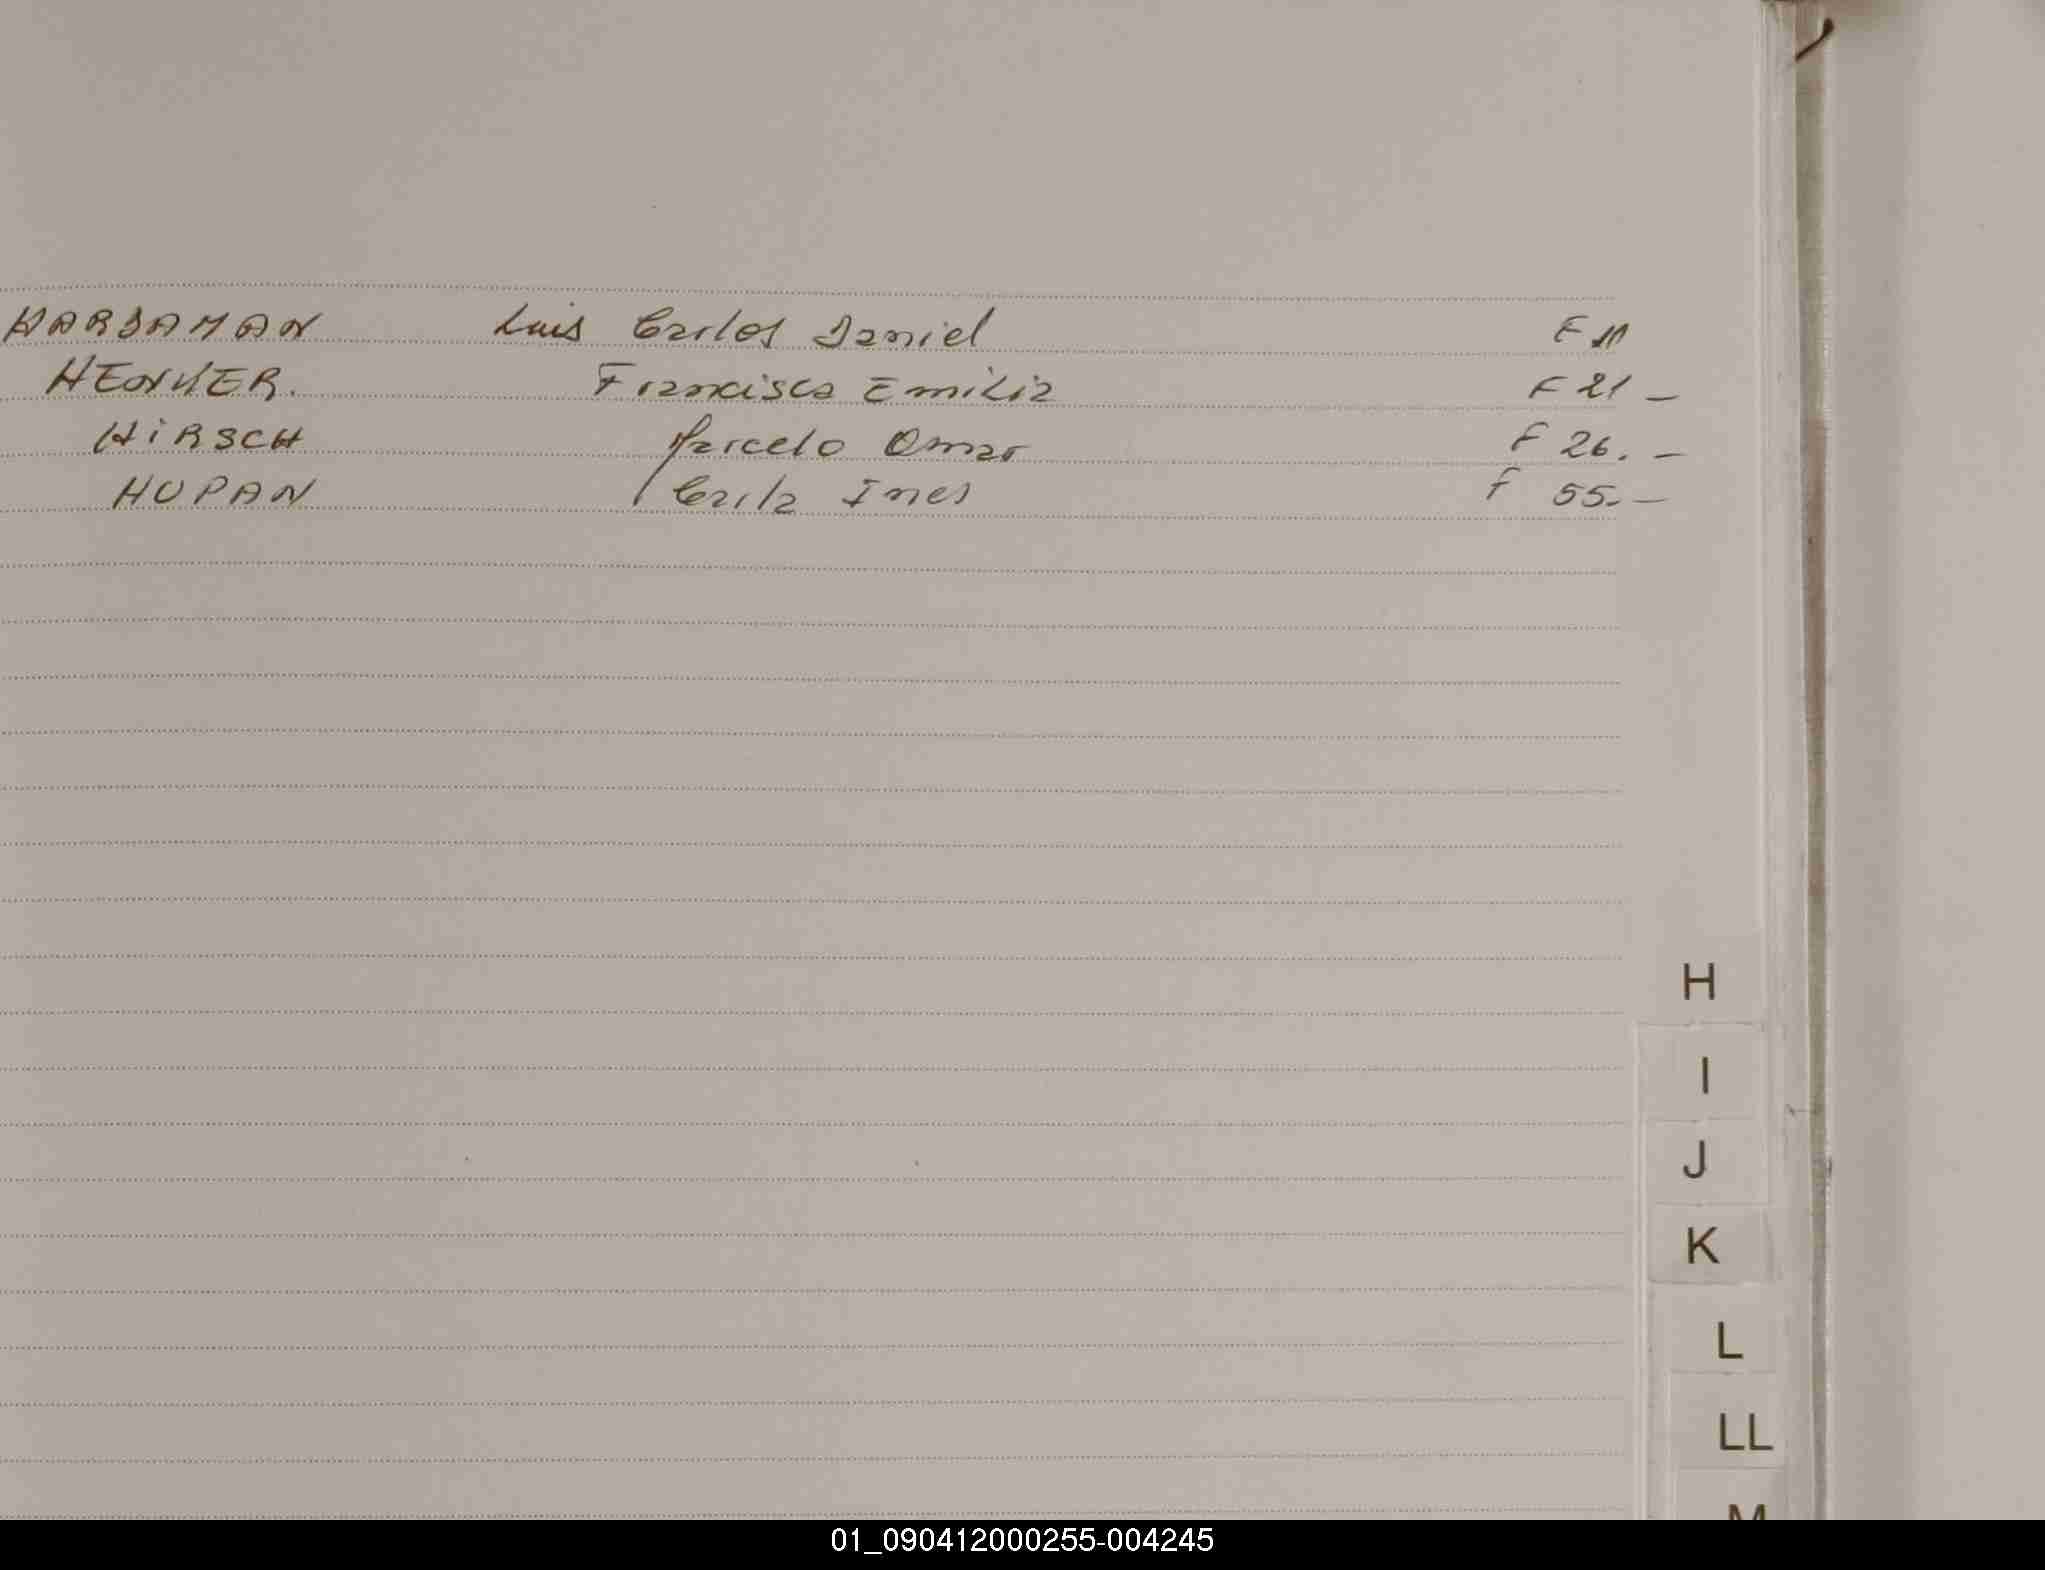 HARDAMAN Luis Carlos Daniel F 11
HENKER. Francisca Emilia F 21 -
HIRSCH Marcelo Omar F 26. -
HUPAN Carla Ines F 55. -
H
I
J
K
L
LL
M
01_090412000255-004245